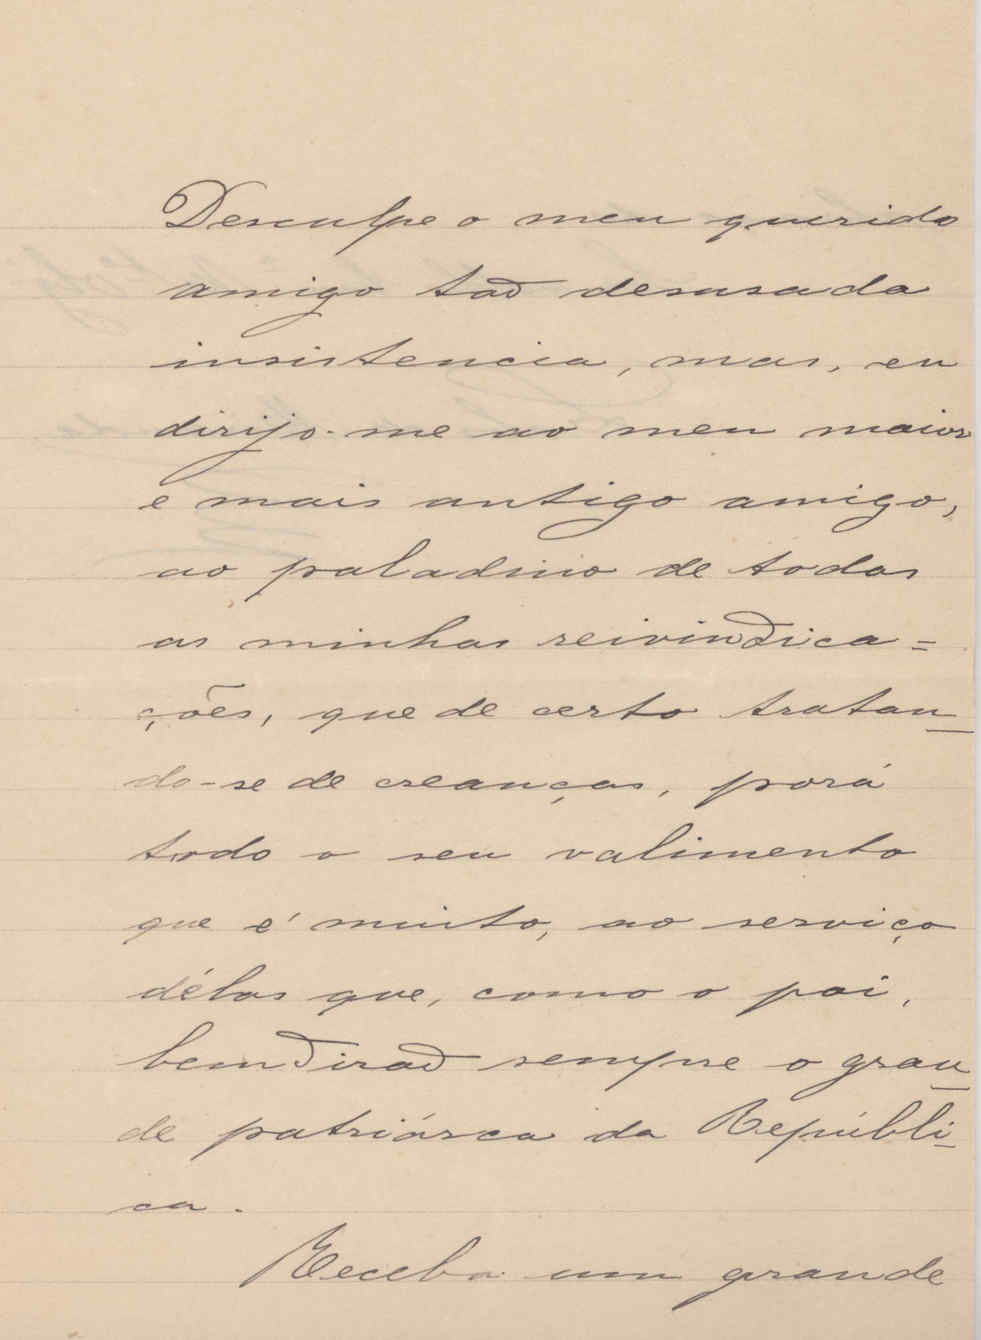 Desculpe o meu querido
amigo taõ desusada
insistencia, mas, eu
dirijo-me ao meu maior
e mais antigo amigo,
ao paladino de todas
as minhas reivindica=
ções, que de certo tratan_
do-se de creanças, porá
todo o seu valimento
que é muito, ao serviço
délas que, como o pai,
bemdiraõ sempre o gran_
de patriárca da Repúbli_
ca.
Receba um grande